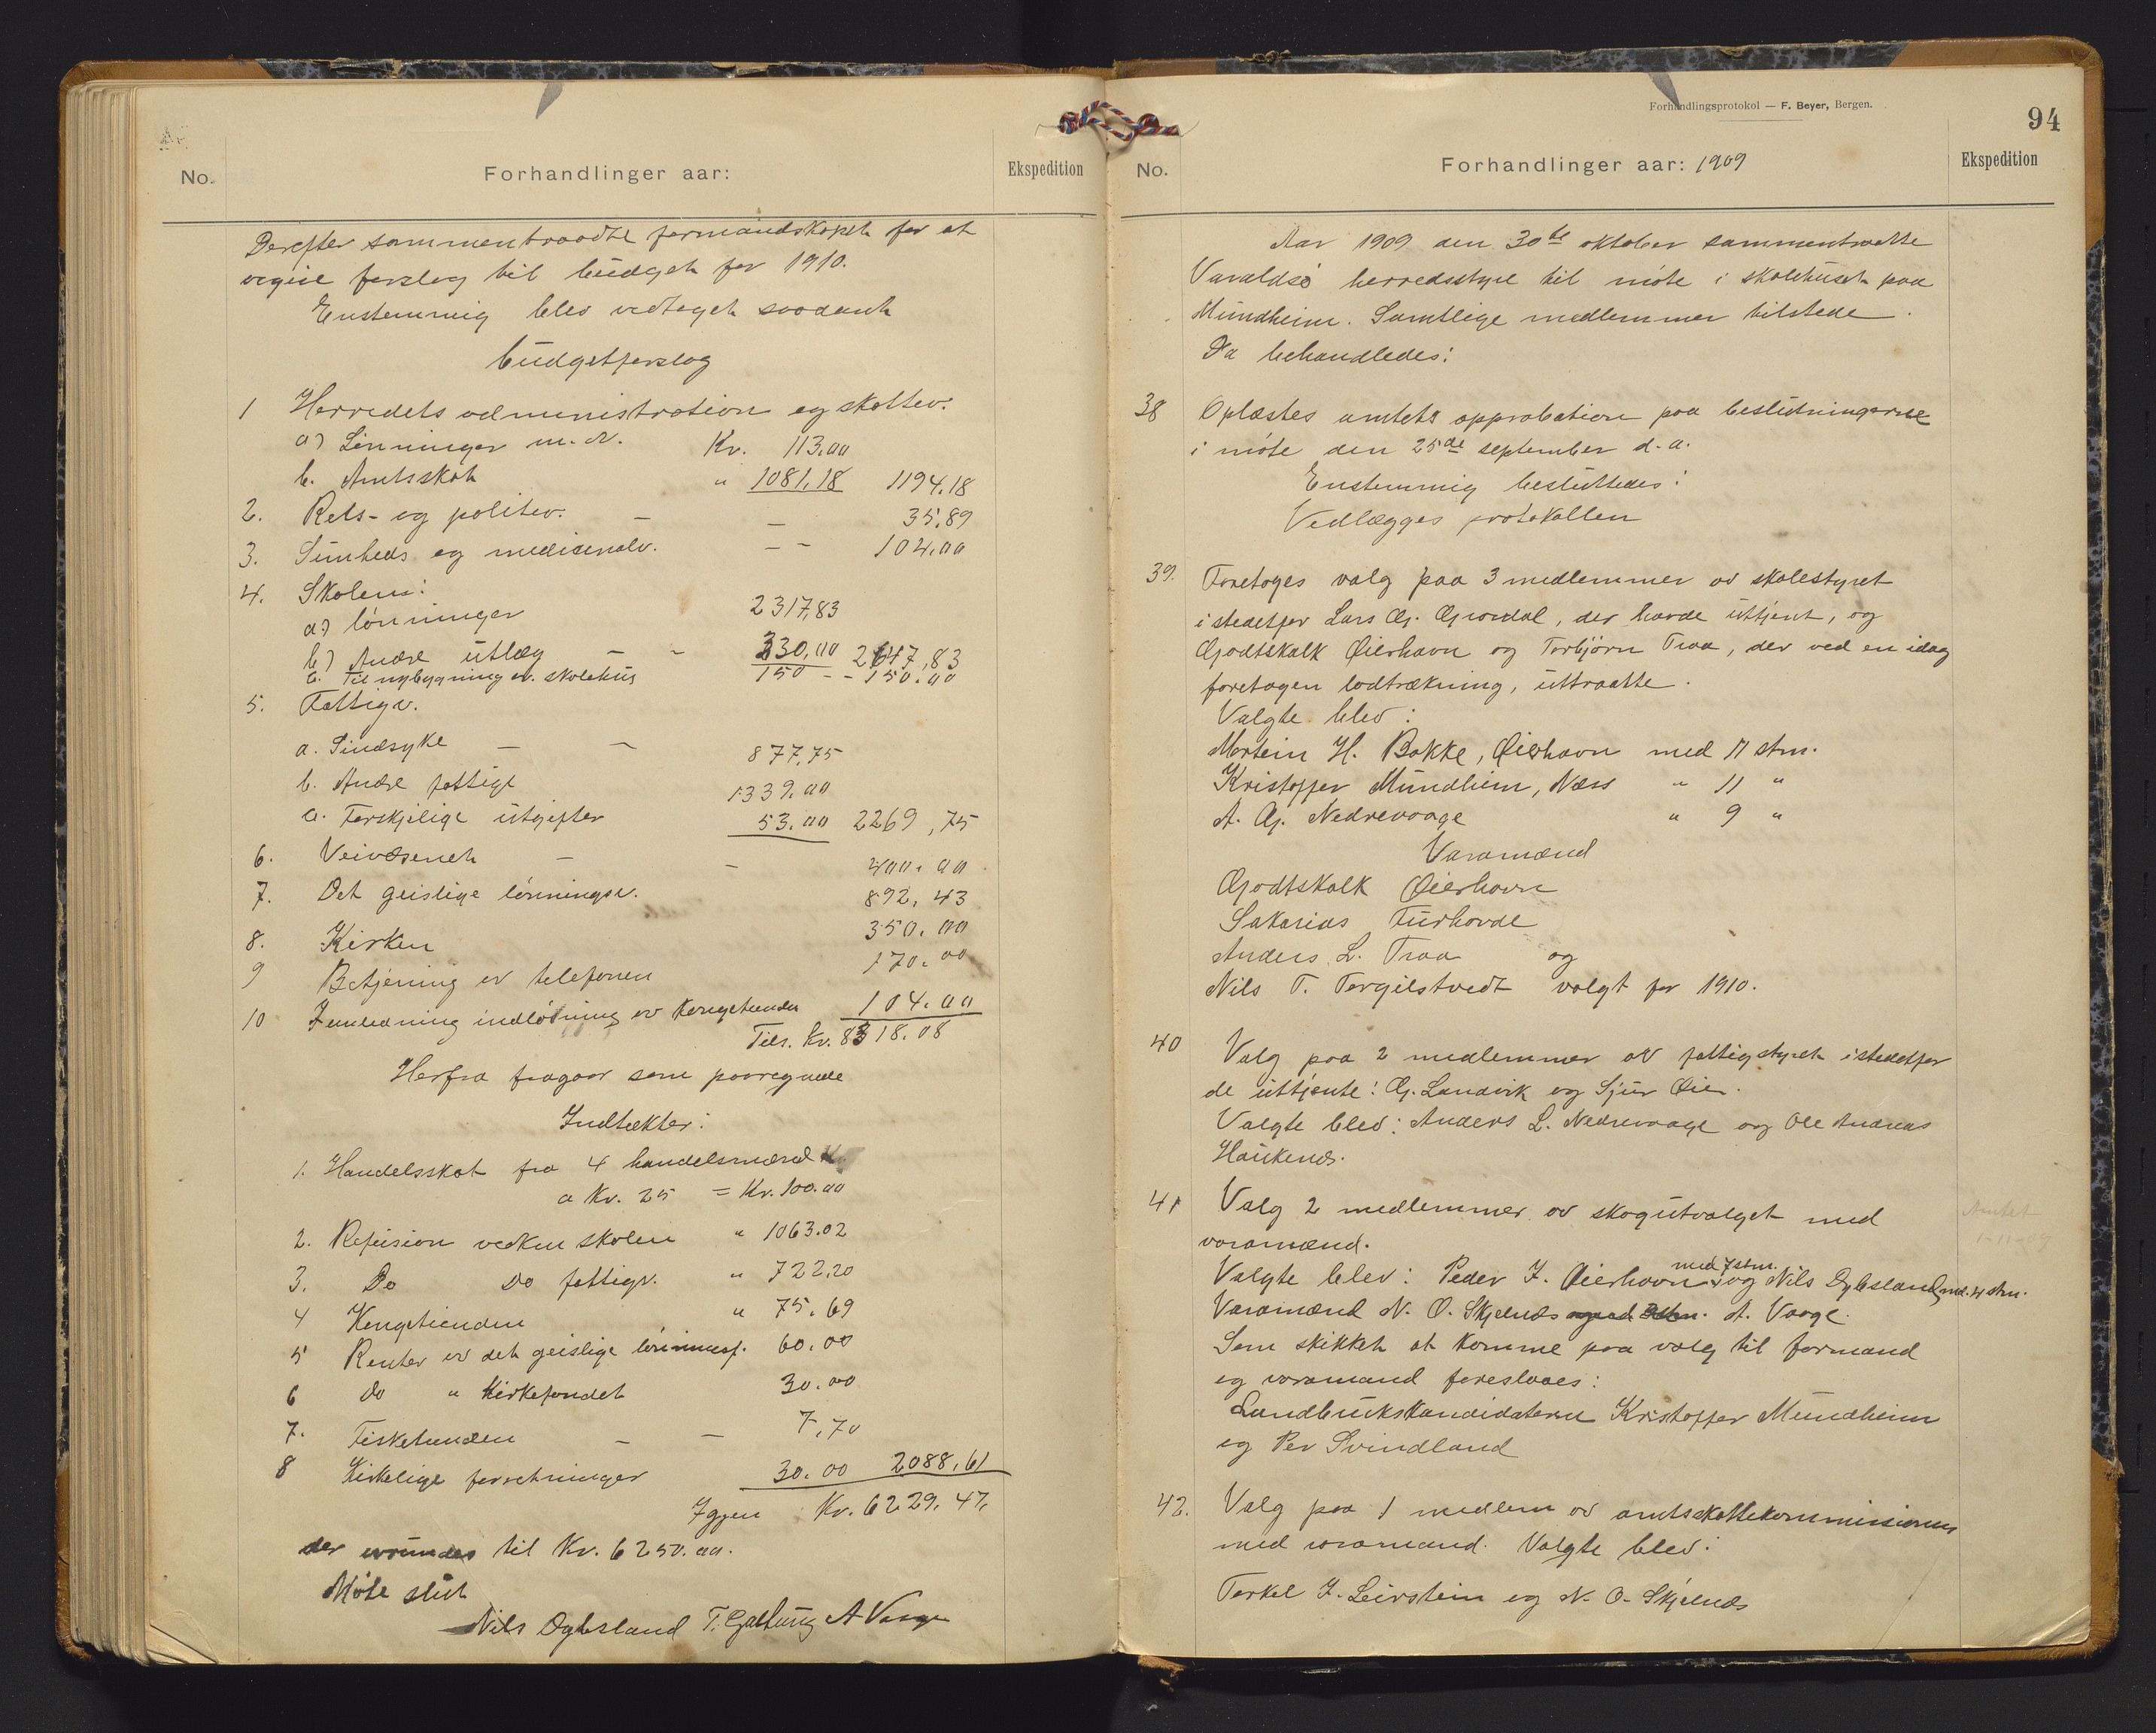 No.
Forhandlinger aar:
Ekspedition
Derefter sammentraadte formandskapet for at
avgive forslag til budget for 1910.
Enstemmig blev vedtaget saadant
budgetforslag
1 Herredets administration og skattev.
a) Lönninger m. v. Kr. 113,00
b. Amtsskat " 1081,18 1194,18
2. Rets- og politiv. — — 35,89
3. Sunheds og medisinalv. — — 104,00
4. Skolen:
a) lönninger 2317,83
b) Andre utlæg — - 330,00 2647,83
c. Til nybygning av skolehus 150 - - 150.00
5. Fattigv.
a. Sindsyke — — 877,75
b. Andre fattige 1339.00
c. Forskjelige utgifter 53.00 2269,75
6. Veivæsenet — — 400,00
7. Det geislige lönningsv. 892,43
8. Kirken 350,00
9 Betjening av telefonen 170.00
10 Indlösning av kongetienden 104.00
Tils. Kr. 8318.08
Herfra fragaar som paaregnede
Indtækter:
1. Handelsskat fra 4 handelsmænd
a Kr. 25 = Kr. 100.00
2. Refusion vedkm skolen " 1063.02
3. Do Do fattigv. " 722,20
4 Kongetienden " 75.69
5 Renter av det geislige lönningsf. 60.00
6 do " Kirkefondet 30.00
7. Fisketienden — — 7,70
8 Kirkelige forretninger 30.00 2088,61
Igjen Kr. 6229.47.
der avrundes til Kr. 6250.00.
Möte slut
Nils Dybsland T. Galtung A Vaage
Forhandlingsprotokol — F. Beyer, Bergen.
94
No.
Forhandlinger aar: 1909
Ekspedition
Aar 1909 den 30te oktober sammentraatte
Varaldsö herredsstyre til möte i skolehuset paa
Mundheim. Samtlige medlemmer tilstede.
Da behandledes:
38 Oplæstes amtets approbation paa beslutningerne
i möte den 25de september d. a.
Enstemmig besluttedes:
Vedlægges protokollen
39. Foretoges valg paa 3 medlemmer av skolestyret
istedetfor Lars G. Gravdal, der havde uttjent, og
Godtskalk Øierhavn og Torbjörn Traa, der ved en idag
foretagen lodtrækning, uttraatte.
Valgte blev:
Mortein H. Bakke, Øierhavn med 11 stm.
Kristoffer Mundheim, Næss " 11 "
A. G. Nedrevaage " 9 "
Varamænd
Godtskalk Øierhavn
Sakarias Furhovde
Anders L. Traa og
Nils T. Torgilstvedt valgt for 1910.
40 Valg paa 2 medlemmer av fattigstyret istedetfor
de uttjente: G. Landvik og Sjur Øie.
Valgte blev: Anders L. Nedrevaage og Ole Andreas
Haukenæs.
41 Valg 2 medlemmer av skogutvalget med
varamænd.
Amtet
1-11-09
med 7 stm.
Valgte blev: Peder J. Øierhavn og Nils Dybsland, md. 4 stm.
Varamænd N. O. Skjelnæs A. Vaage.
Som skikket at komme paa valg til formand
og varamand foreslaaes:
Landbrukskandidaterne Kristoffer Mundheim
og Per Svindland
42. Valg paa 1 medlem av amtsskattekommissionen
med varamand. Valgte blev:
Torkel J. Leirstein og N. O. Skjelnæs